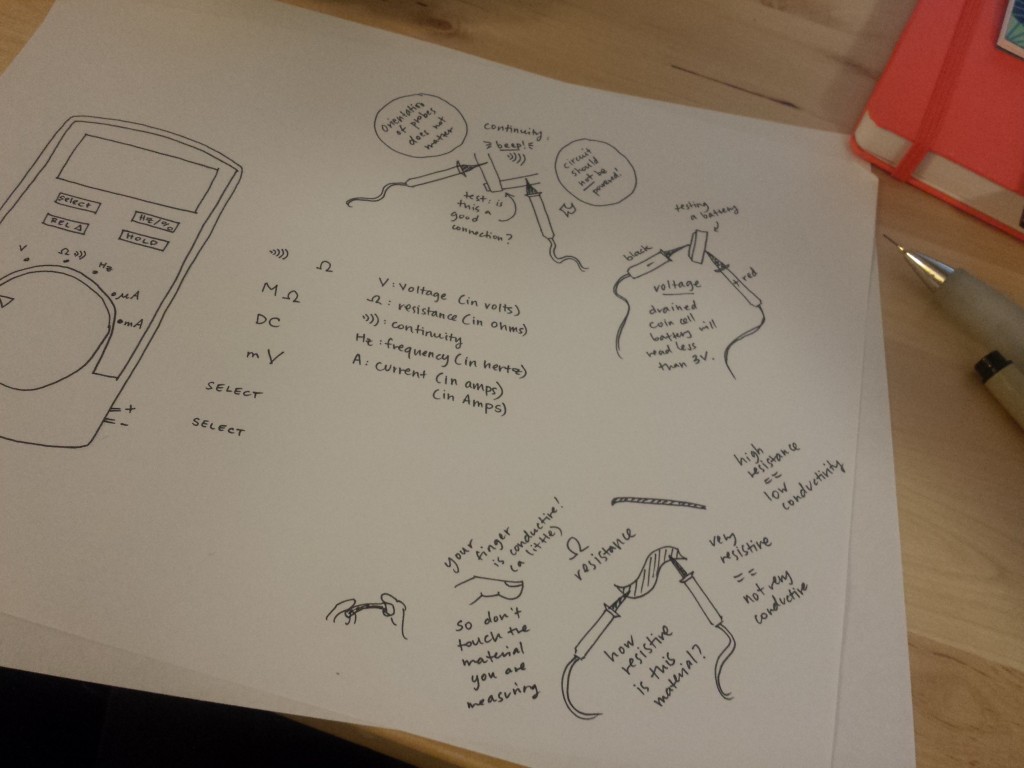 Select
Hz/%
REL Δ
HOLD
V
Ω •)))
Hz
µA
mA
+
−
Orientation
of probes
does not
matter
continuity.
beep!
test: is
this a
good
connection?
circuit
should
not be
powered!
testing
a battery
black
−
+
red
voltage
drained
coin cell
battery will
read less
than 3V.
•))) Ω
MΩ
DC
mV
SELECT
SELECT
V: voltage (in volts)
Ω: resistance (in ohms)
•))): continuity
Hz: frequency (in hertz)
A: current (in amps)
(in Amps)
your
finger
is conductive!
(a little)
so don't
touch the
material
you are
measuring
Ω
resistance
how
resistive
is this
material?
high
resistance
==
low
conductivity
very
resistive
==
not very
conductive